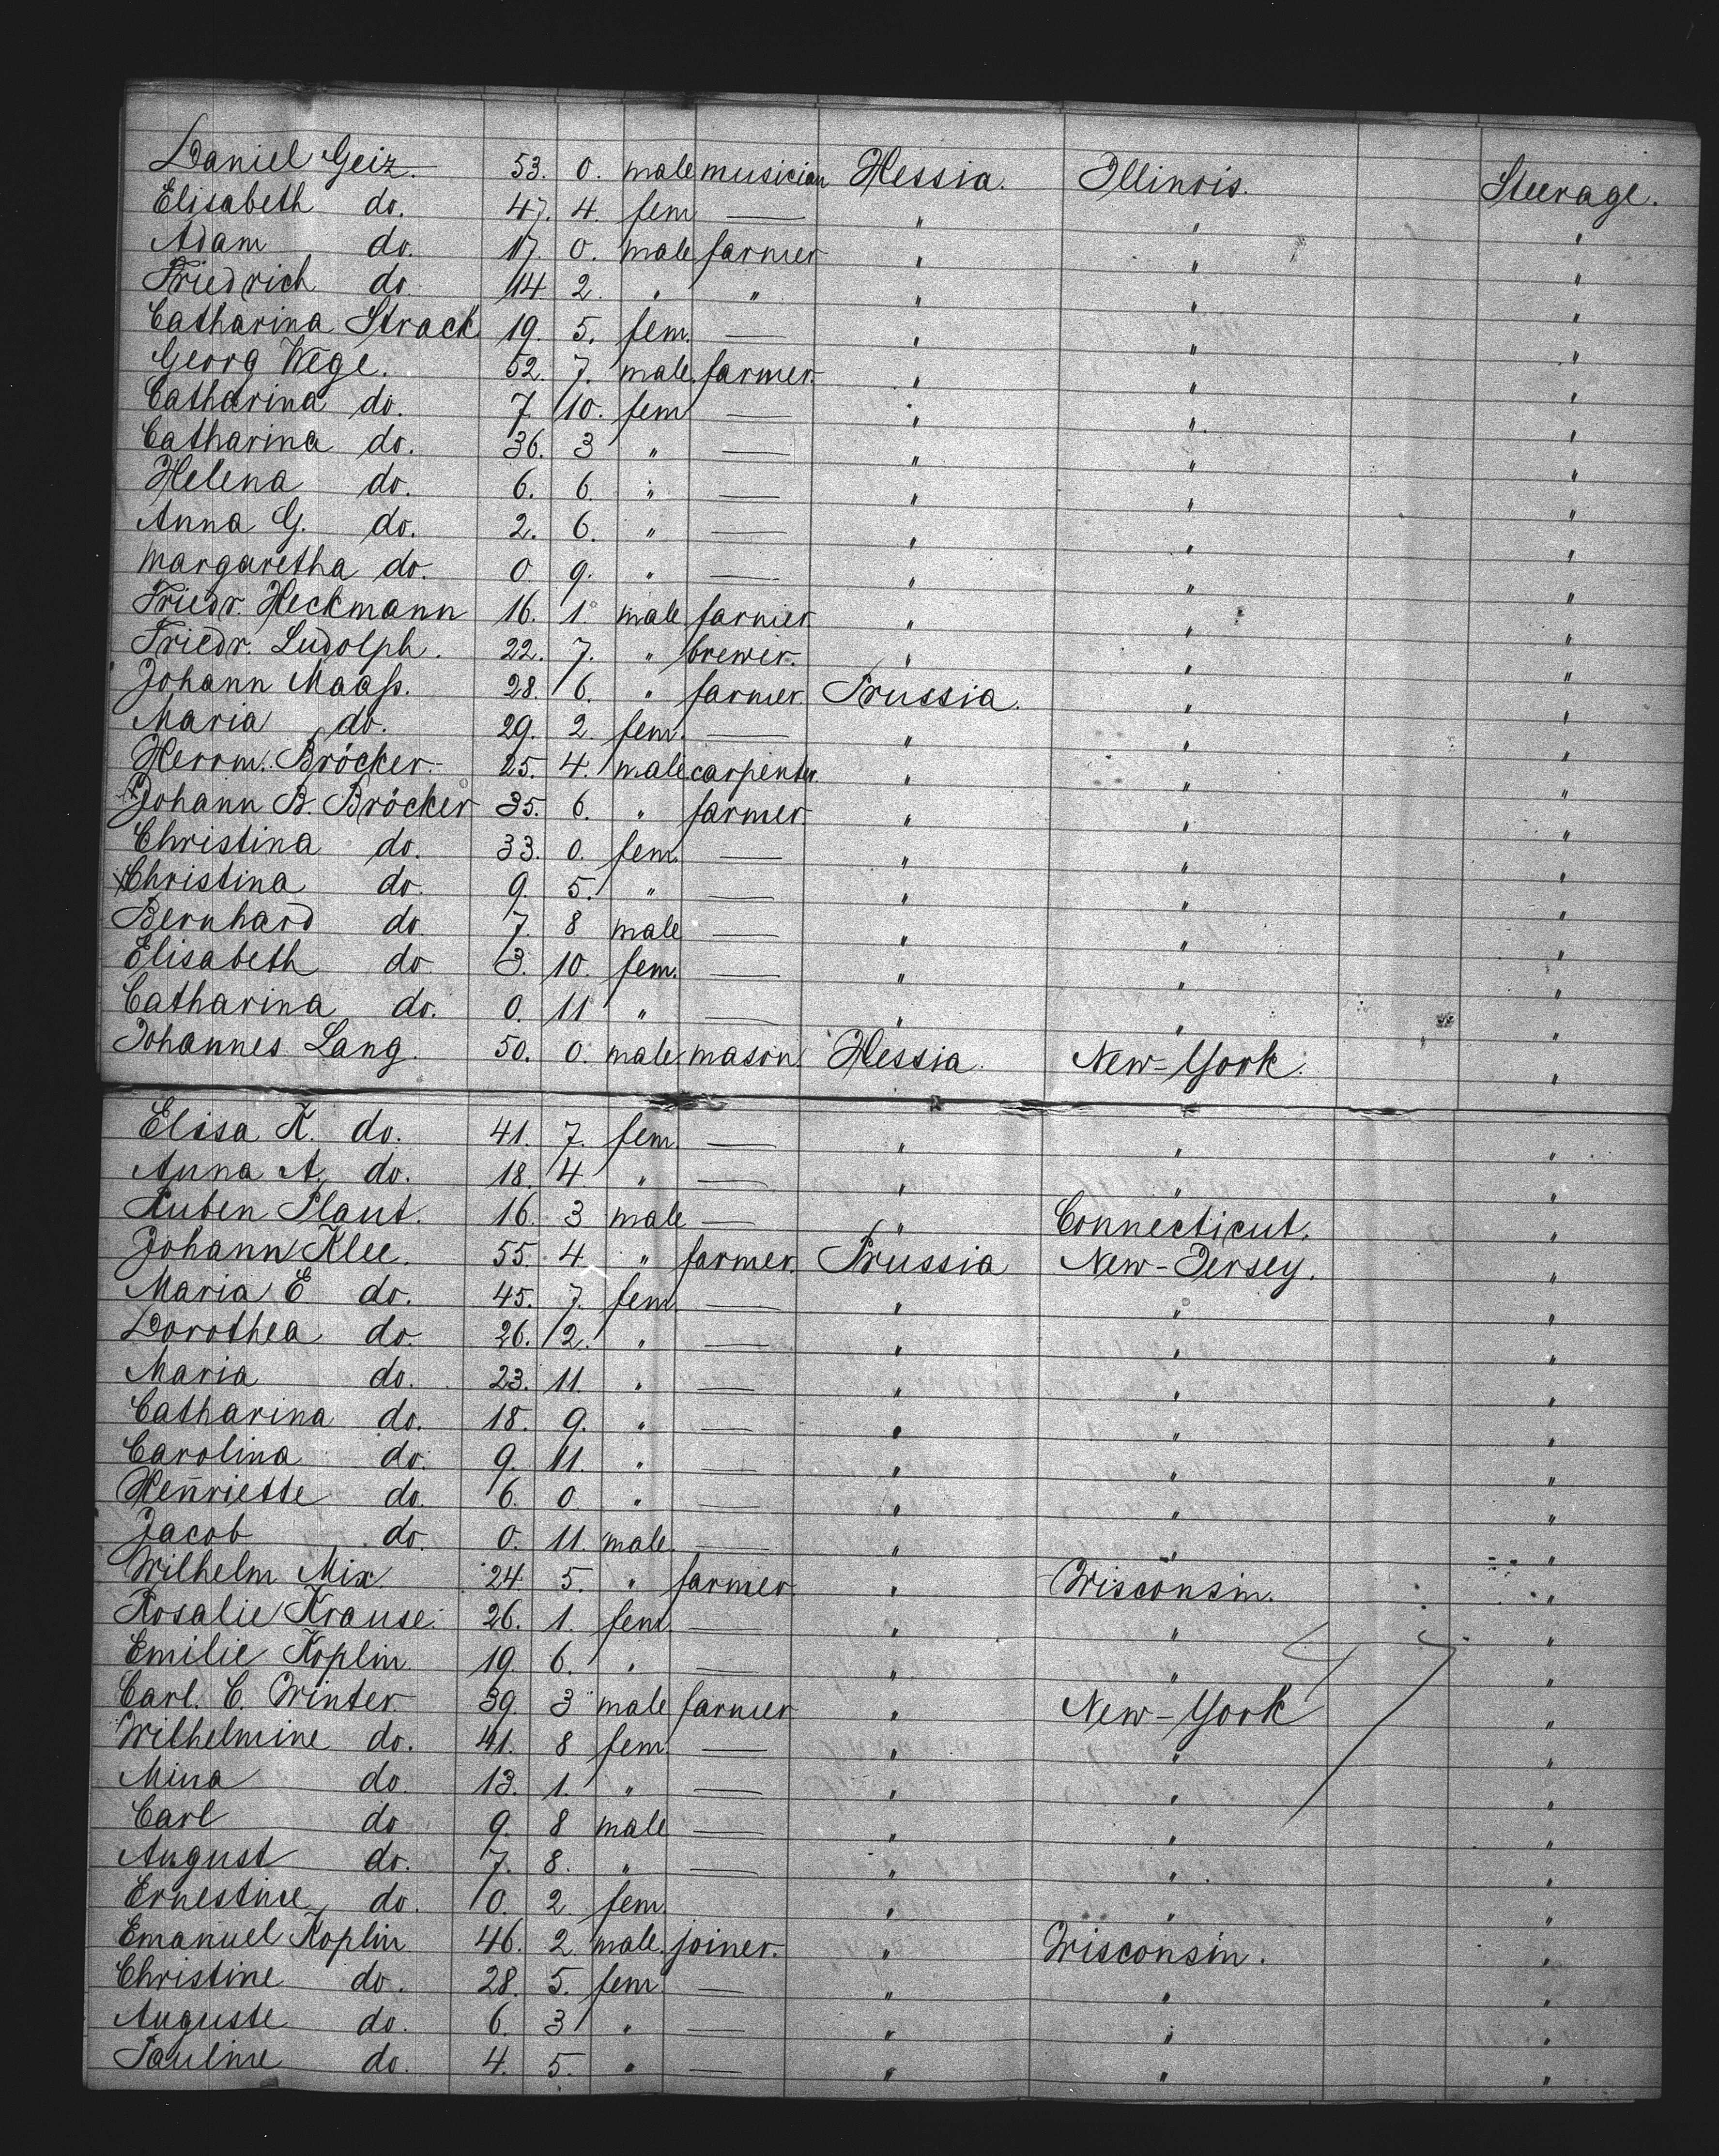 Daniel Geiz. 53. 0. male musician Hessia. Illinois. Steerage.
Elisabeth do. 47. 4. fem — " " "
Adam do. 17. 0. male farmer " " "
Friedrich do. 14 2. " " " " "
Catharina Strack 19. 5. fem. — " " "
Georg Wege. 52. 7. male farmer. " " "
Catharina do. 7. 10. fem — " " "
Catharina do. 36. 3 " — " " "
Helena do. 6. 6. " — " " "
Anna G. do. 2. 6. " — " " "
Margaretha do. 0. 9. " — " " "
Friedr. Heckmann 16. 1. male farmer " " "
Friedr. Ludolph. 22. 7. " brewer. " " "
Johann Maaß. 28. 6. " farmer. Prussia. " "
Maria do. 29. 2. fem. — " " "
Herrm. Bröcker. 25. 4. male carpenter. " " "
Johann B. Bröcker 35. 6. " farmer. " " "
Christina do. 33. 0. fem. — " " "
Christina do. 9. 5. " — " " "
Bernhard do. 7. 8 male — " " "
Elisabeth do 3. 10. fem. — " " "
Catharina do. 0. 11 " — " " "
Johannes Lang. 50. 0. male mason. Hessia. New-York. "
Elisa K. do. 41. 7. fem. — " " "
Anna A. do. 18. 4 " — " " "
Ruben Plaut. 16. 3 male — " Connecticut. "
Johann Klee. 55. 4. " farmer. Prussia New-Jersey. "
Maria E do. 45. 7. fem. — " " "
Dorothea do. 26. 2. " — " " "
Maria do. 23. 11. " — " " "
Catharina do. 18. 9. " — " " "
Carolina do. 9. 11. " — " " "
Henriette do. 6. 0. " — " " "
Jacob do. 0. 11. male. — " " "
Wilhelm Mix. 24. 5. " farmer. " Wisconsin. "
Rosalie Krause. 26. 1. fem. — " " "
Emilie Koplin. 19. 6. " — " " "
Carl. C. Winter. 39. 3 male farmer " New-York "
Wilhelmine do. 41. 8 fem. — " " "
Mina do 13. 1. " — " " "
Carl do 9. 8 male — " " "
August do. 7. 8. " — " " "
Ernestine do. 0. 2 fem " " "
Emanuel Koplin 46. 2. male. joiner. " Wisconsin. "
Christine do. 28. 5. fem. — " " "
Auguste do. 6. 3 " — " " "
Pauline do. 4. 5. " — " " "